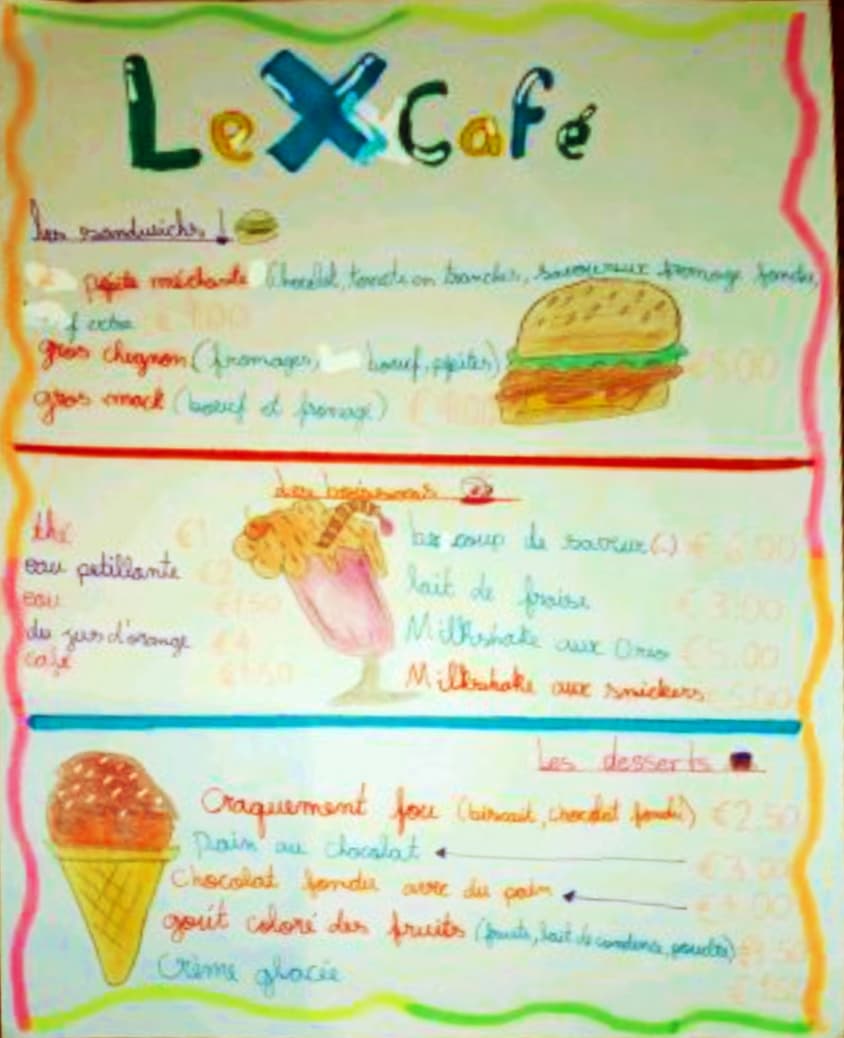 Le X Café
Les sandwichs
pépite méchante (Chocolat, tomate en tranches, savoureux fromage fondu,
extra
gros chignon (fromages, boeuf, pépites) €5.00
gros mack (boeuf et fromage)
Les boissons
thé €1
eau petillante €2
eau €1.50
du jus d'orange €4
café €1.50
coup de saveur (.) €6.00
lait de fraise €3.00
Milkshake aux Oreo €5.00
Milkshake aux snickers €5.00
Les desserts
Craquement fou (biscuit, chocolat fondu) €2.50
pain au chocolat €3.00
Chocolat fondu avec du pain
goût coloré des fruits (fruits, lait de condence, poudre)
Crème glacée